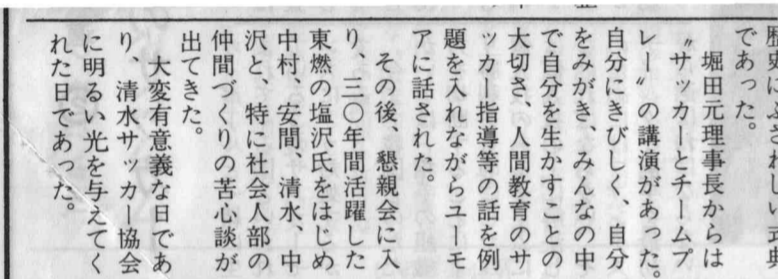 歴史にふさわしい式典
であった。
堀田元理事長からは
〝サッカーとチームプ
レー〟の講演があった
自分にきびしく、自分
をみがき、みんなの中
で自分を生かすことの
大切さ、人間教育のサ
ッカー指導等の話を例
題を入れながらユーモ
アに話された。
その後、懇親会に入
り、三〇年間活躍した
東燃の塩沢氏をはじめ
中村、安間、清水、中
沢と、特に社会人部の
仲間づくりの苦心談が
出てきた。
大変有意義な日であ
り、清水サッカー協会
に明るい光を与えてく
れた日であった。